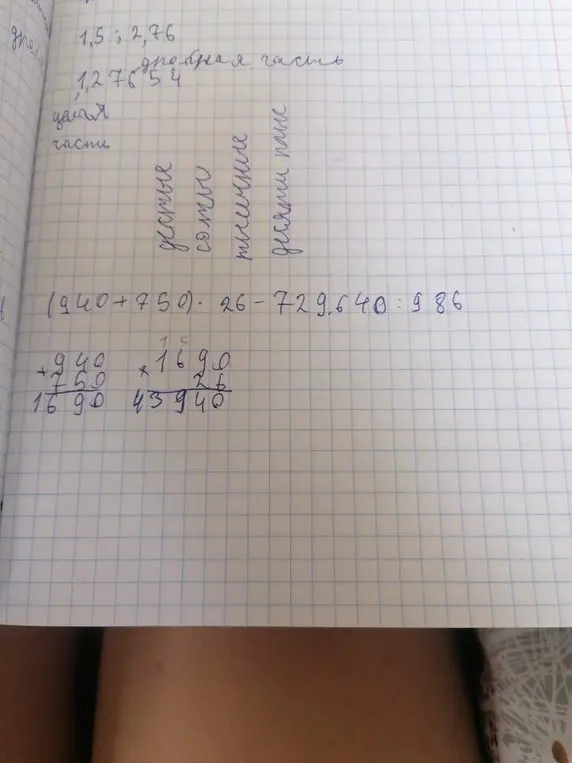 1,5 ; 2,76
дробная часть
1,27654
целая
часть
десятые
сотые
тысячные
десяти тыс
(940+750)· 26-729.640:986
+940
750
1690
15
×1690
26
43940